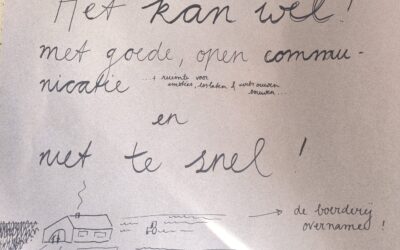 Het kan wel!
met goede, open commu-
nicatie ...+ ruimte voor
emoties, loslaten & vertrouwen
bouwen...
en
niet te snel!
→ de boerderij
overname!